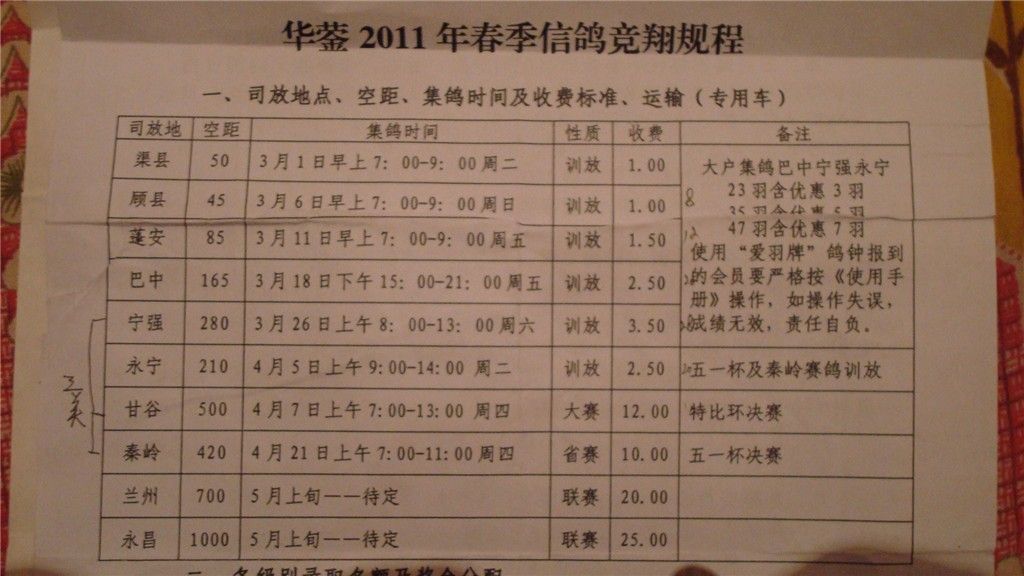 华蓥 2011 年春季信鸽竞翔规程
一、司放地点、空距、集鸽时间及收费标准、运输（专用车）
司放地 空距 集鸽时间 性质 收费 备注
渠县 50 3 月 1 日早上 7：00-9：00 周二 训放 1.00 大户集鸽巴中宁强永宁
23 羽含优惠 3 羽
顾县 45 3 月 6 日早上 7：00-9：00 周日 训放 1.00
35 羽含优惠 5 羽
47 羽含优惠 7 羽
蓬安 85 3 月 11 日早上 7：00-9：00 周五 训放 1.50
使用“爱羽牌”鸽钟报到
巴中 165 3 月 18 日下午 15：00-21：00 周五 训放 2.50 的会员要严格按《使用手
册》操作，如操作失误，
宁强 280 3 月 26 日上午 8：00-13：00 周六 训放 3.50 成绩无效，责任自负。
永宁 210 4 月 5 日上午 9:00-14:00 周二 训放 2.50 五一杯及秦岭赛鸽训放
甘谷 500 4 月 7 日上午 7:00-13:00 周四 大赛 12.00 特比环决赛
秦岭 420 4 月 21 日上午 7:00-11:00 周四 省赛 10.00 五一杯决赛
兰州 700 5 月上旬——待定 联赛 20.00
永昌 1000 5 月上旬——待定 联赛 25.00
三关
二、各级别录取名额及奖金分配